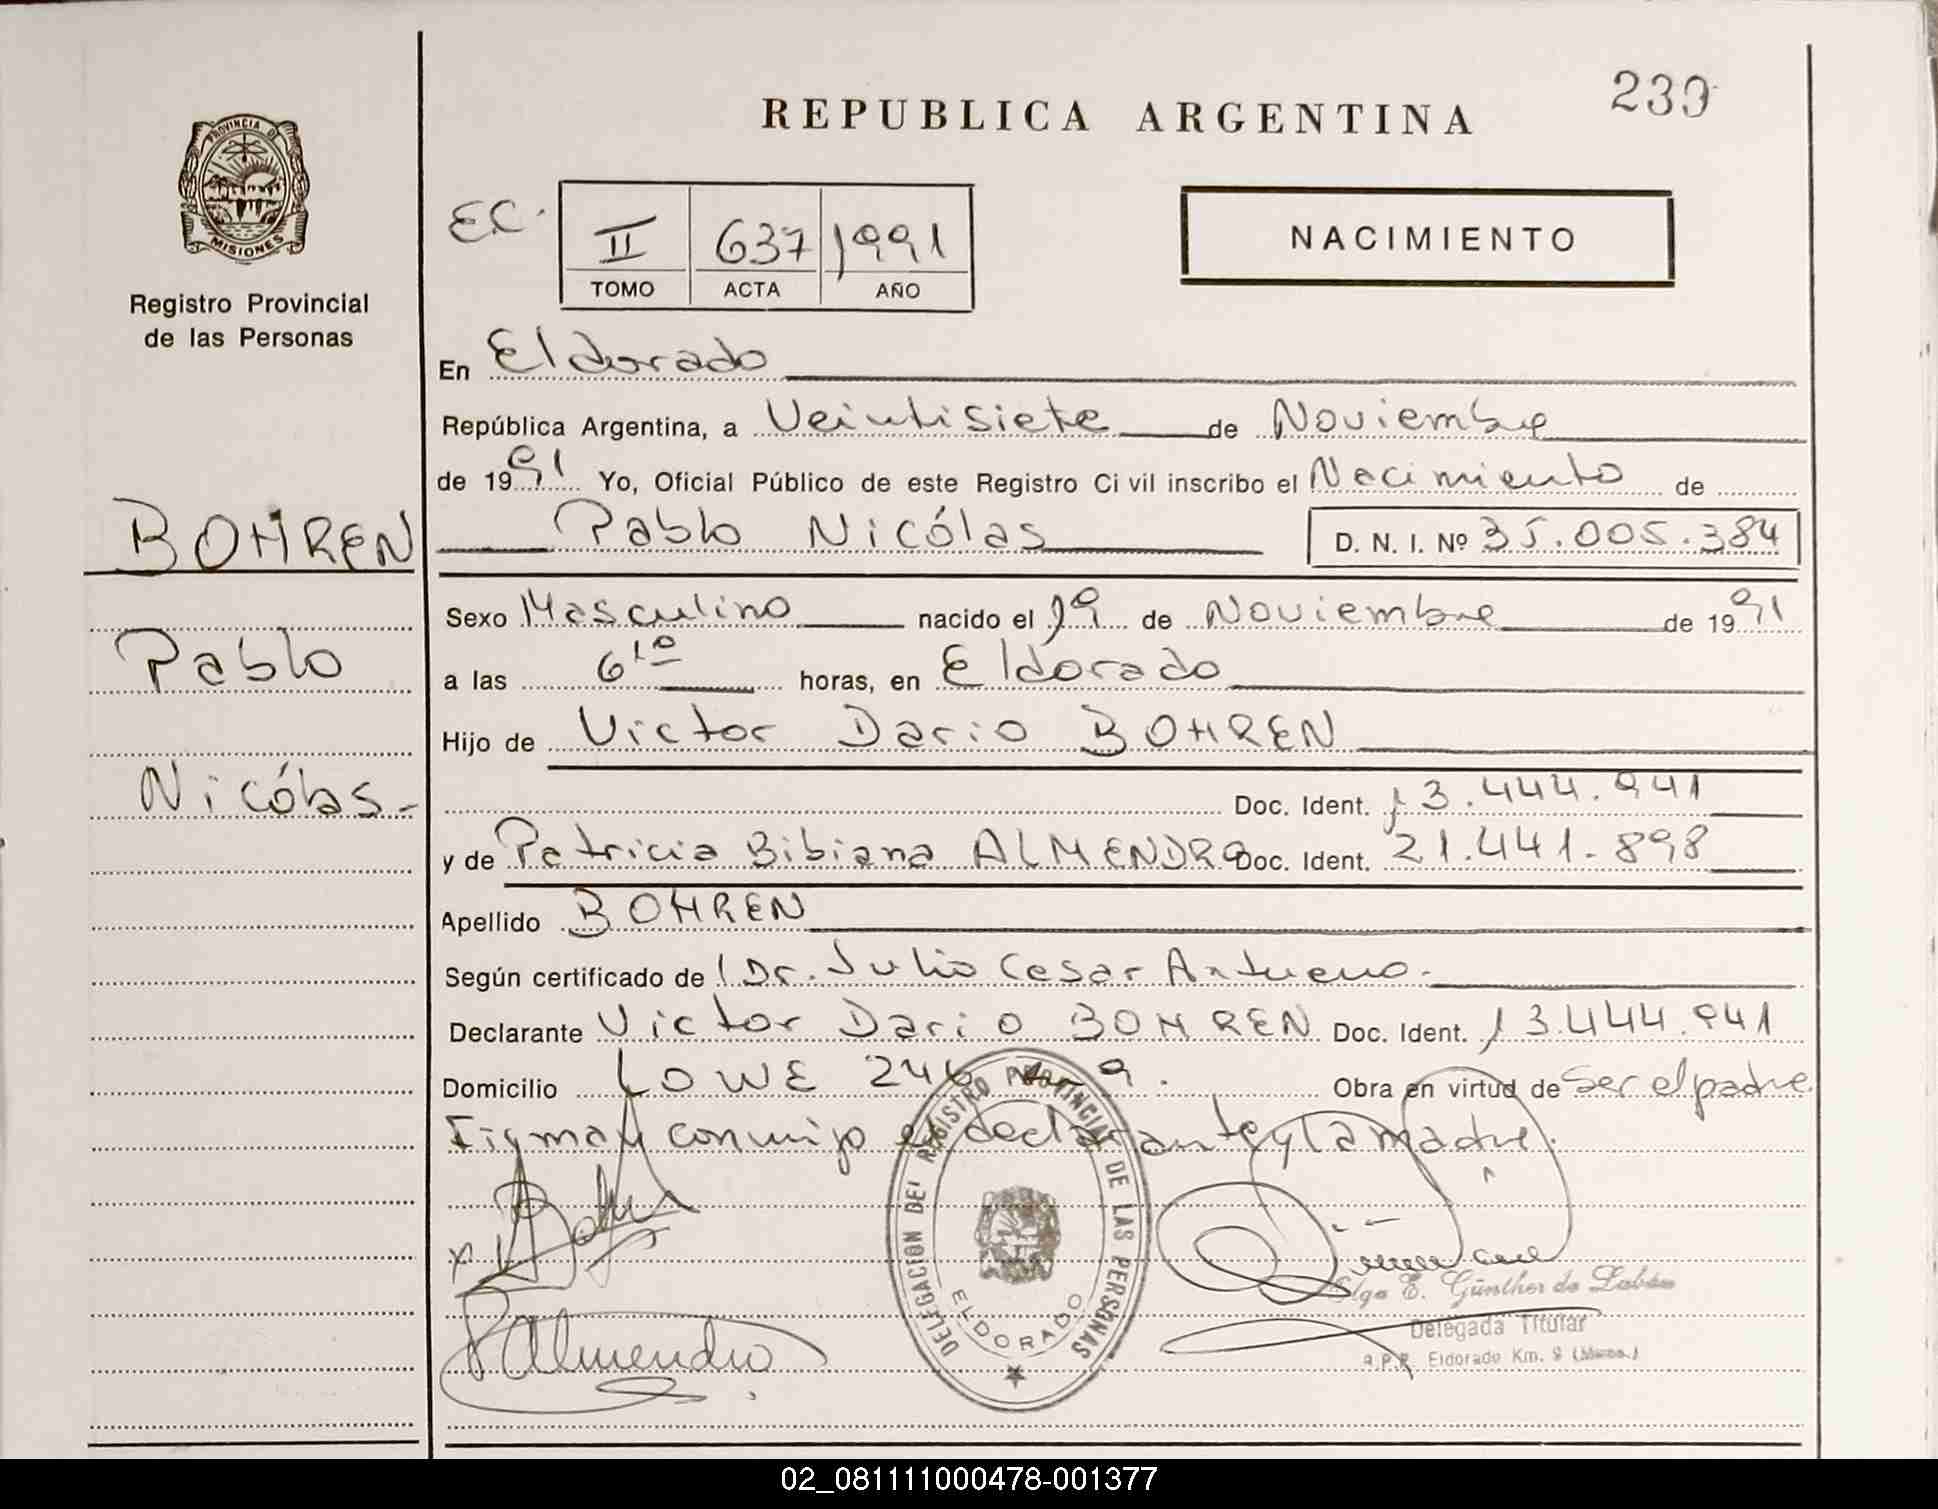 239
REPUBLICA ARGENTINA
PROVINCIA DE
MISIONES
Registro Provincial
de las Personas
EC.
II 637 1991
TOMO ACTA AÑO
NACIMIENTO
En Eldorado
República Argentina, a Veintisiete de Noviembre
de 1991 Yo, Oficial Público de este Registro Civil inscribo el Nacimiento de
Pablo Nicólas D. N. I. Nº 35.005.384
BOHREN
Pablo
Nicólas-
Sexo Masculino nacido el 19 de Noviembre de 1991
a las 6 10 horas, en Eldorado
Hijo de Victor Dario BOHREN
Doc. Ident. 13.444.941
y de Patricia Bibiana ALMENDRO Doc. Ident. 21.441.898
Apellido BOHREN
Según certificado de Dr. Julio Cesar
Declarante Victor Dario BOHREN Doc. Ident. 13.444.941
Domicilio LOWE 246 9. Obra en virtud de Ser el padre
Firman conmigo el declarante y la madre.
DELEGACION DEL REGISTRO PROVINCIAL DE LAS PERSONAS
ELDORADO
x
PAlmendro
Olga E. Günther de
Delegada Titular
R.P.P. Eldorado Km. 9
02_081111000478-001377